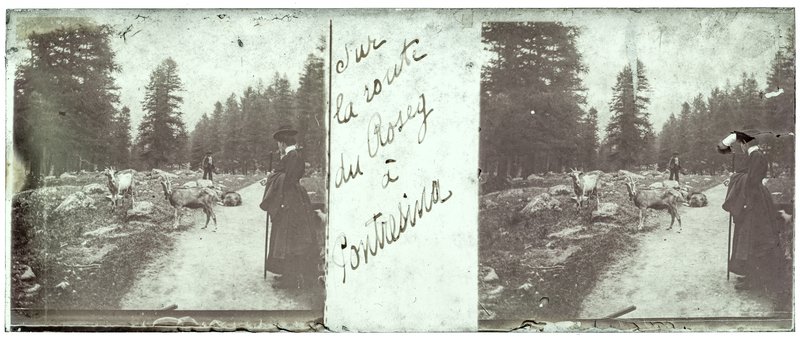 Sur
la route
du Roseg
à
Pontresina